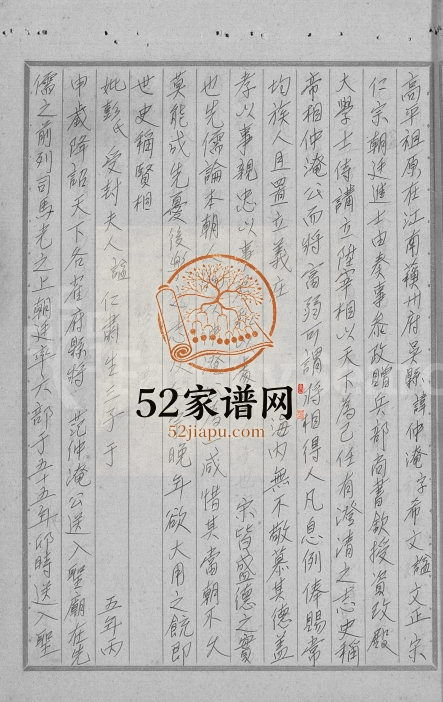 高平祖原在江南蘓州府吴縣諱仲淹字希文謚文正宋
仁宗朝廷進士由奏事叅政贈兵部尚書欽授資政殿
大學士侍講立陞宰相以天下為己任有澄清之志史稱
帝相仲淹公而將高弱可謂將相得人凡息例俸賜常
均族人且置立義庄 海内無不敬慕其德盖
孝以事親忠以事 宋皆盛德之實
也先儒論本朝人 咸惜其當朝不久
莫能成先憂後 晚年欲大用之飢即
世史稱賢相
妣彭氏受封夫人謚仁肅生三子于 五年丙
申歲降詔天下各省府縣將 范仲淹公送入聖廟在先
儒之前列司馬光之上朝廷率六部于五十五年卯時送入聖
52家谱网
52jiapu.com